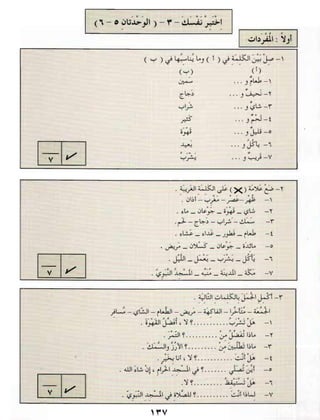 اِخْتَبِرْ نَفْسَكَ - ٣ - (الوَحْدَتَانِ ٥ - ٦)
أولاً : المُفْرَدَات
١- صِلْ بَيْنَ الكَلِمَةِ في ( أ ) وما يُنَاسِبُهَا في ( ب )
( أ ) ( ب )
١- طعام و ... سَمين
٢- نَحيف و ... دَجاج
٣- شاي و ... شَراب
٤- لَحْم و ... كَثير
٥- قَليل و ... قَهْوَة
٦- يأكُلُ و ... بَعيد
٧- قَريب و ... يَشْرَبُ
٧
٢- ضَعْ عَلامَة (×) عَلى الكَلِمَةِ الغَرِيبَةِ .
١- ظُهْر - عَصْر - مَغْرِب - أذان .
٢- شاي - قَهْوَة - جَوْعان - ماء .
٣- سَمَك - شَراب - دَجاج - لَحْم .
٤- طَعام - فَطور - غَداء - عَشاء .
٥- مائدة - جَوْعان - كَسْلان - مَريض .
٦- يَأْكُل - يَشْرَب - يَعْمَل - اللَّيْل .
٧- مَكّة - المَدينَة - مُنَبِّه - المسْجِد النَّبَوِيّ .
٧
٣- أكْمِلِ الجُمَلَ بالكَلِماتِ التّاليَة .
الجُمُعَة - مُتَأخِّرا - الفاكِهة - مَريض - الطَّعام - الشّاي - مُسافِر
١- هَلْ تَشْرَبُ ..........؟ لا ، أُفَضِّلُ القَهْوَة .
٢- ماذا تُفَضِّلُ مِنْ ..........؟ التَّمْرَ .
٣- ماذا تَطْلُبينَ مِنَ ..........؟ الأرُزَّ والسَّمَكَ .
٤- هَلْ أنْتَ ..........؟ لا ، أنا بِخَيْر .
٥- أيْنَ تُصَلِّي ..........؟ في المسْجِدِ الحَرامِ ، إنْ شاءَ الله .
٦- هَلْ تَسْتَيْقِظُ ..........؟ لا .
٧- لماذا أنْتَ ..........؟ للصَّلاةِ في المسْجِدِ النَّبَوِيّ .
٧
١٣٧